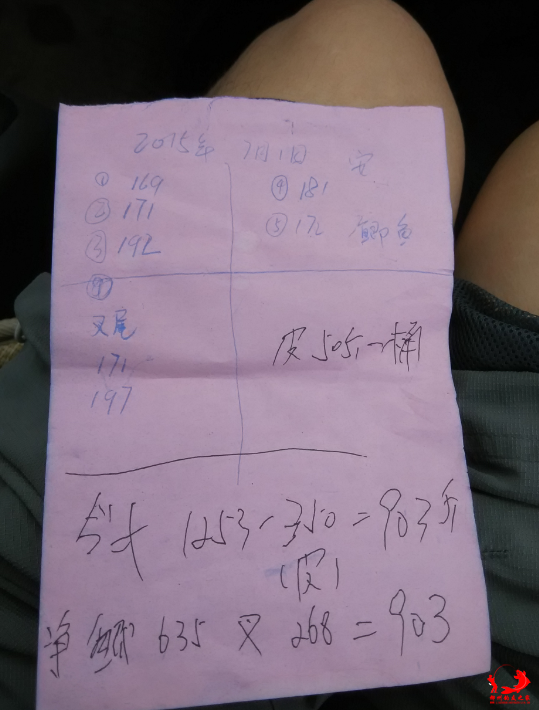 2015年 7月1日
① 169 ④ 181
② 171 ⑤ 172 鲫鱼
③ 192
④
叉尾
171
197
皮50斤一桶
1253-350=903斤
(皮)
净鲫 635 叉 268=903